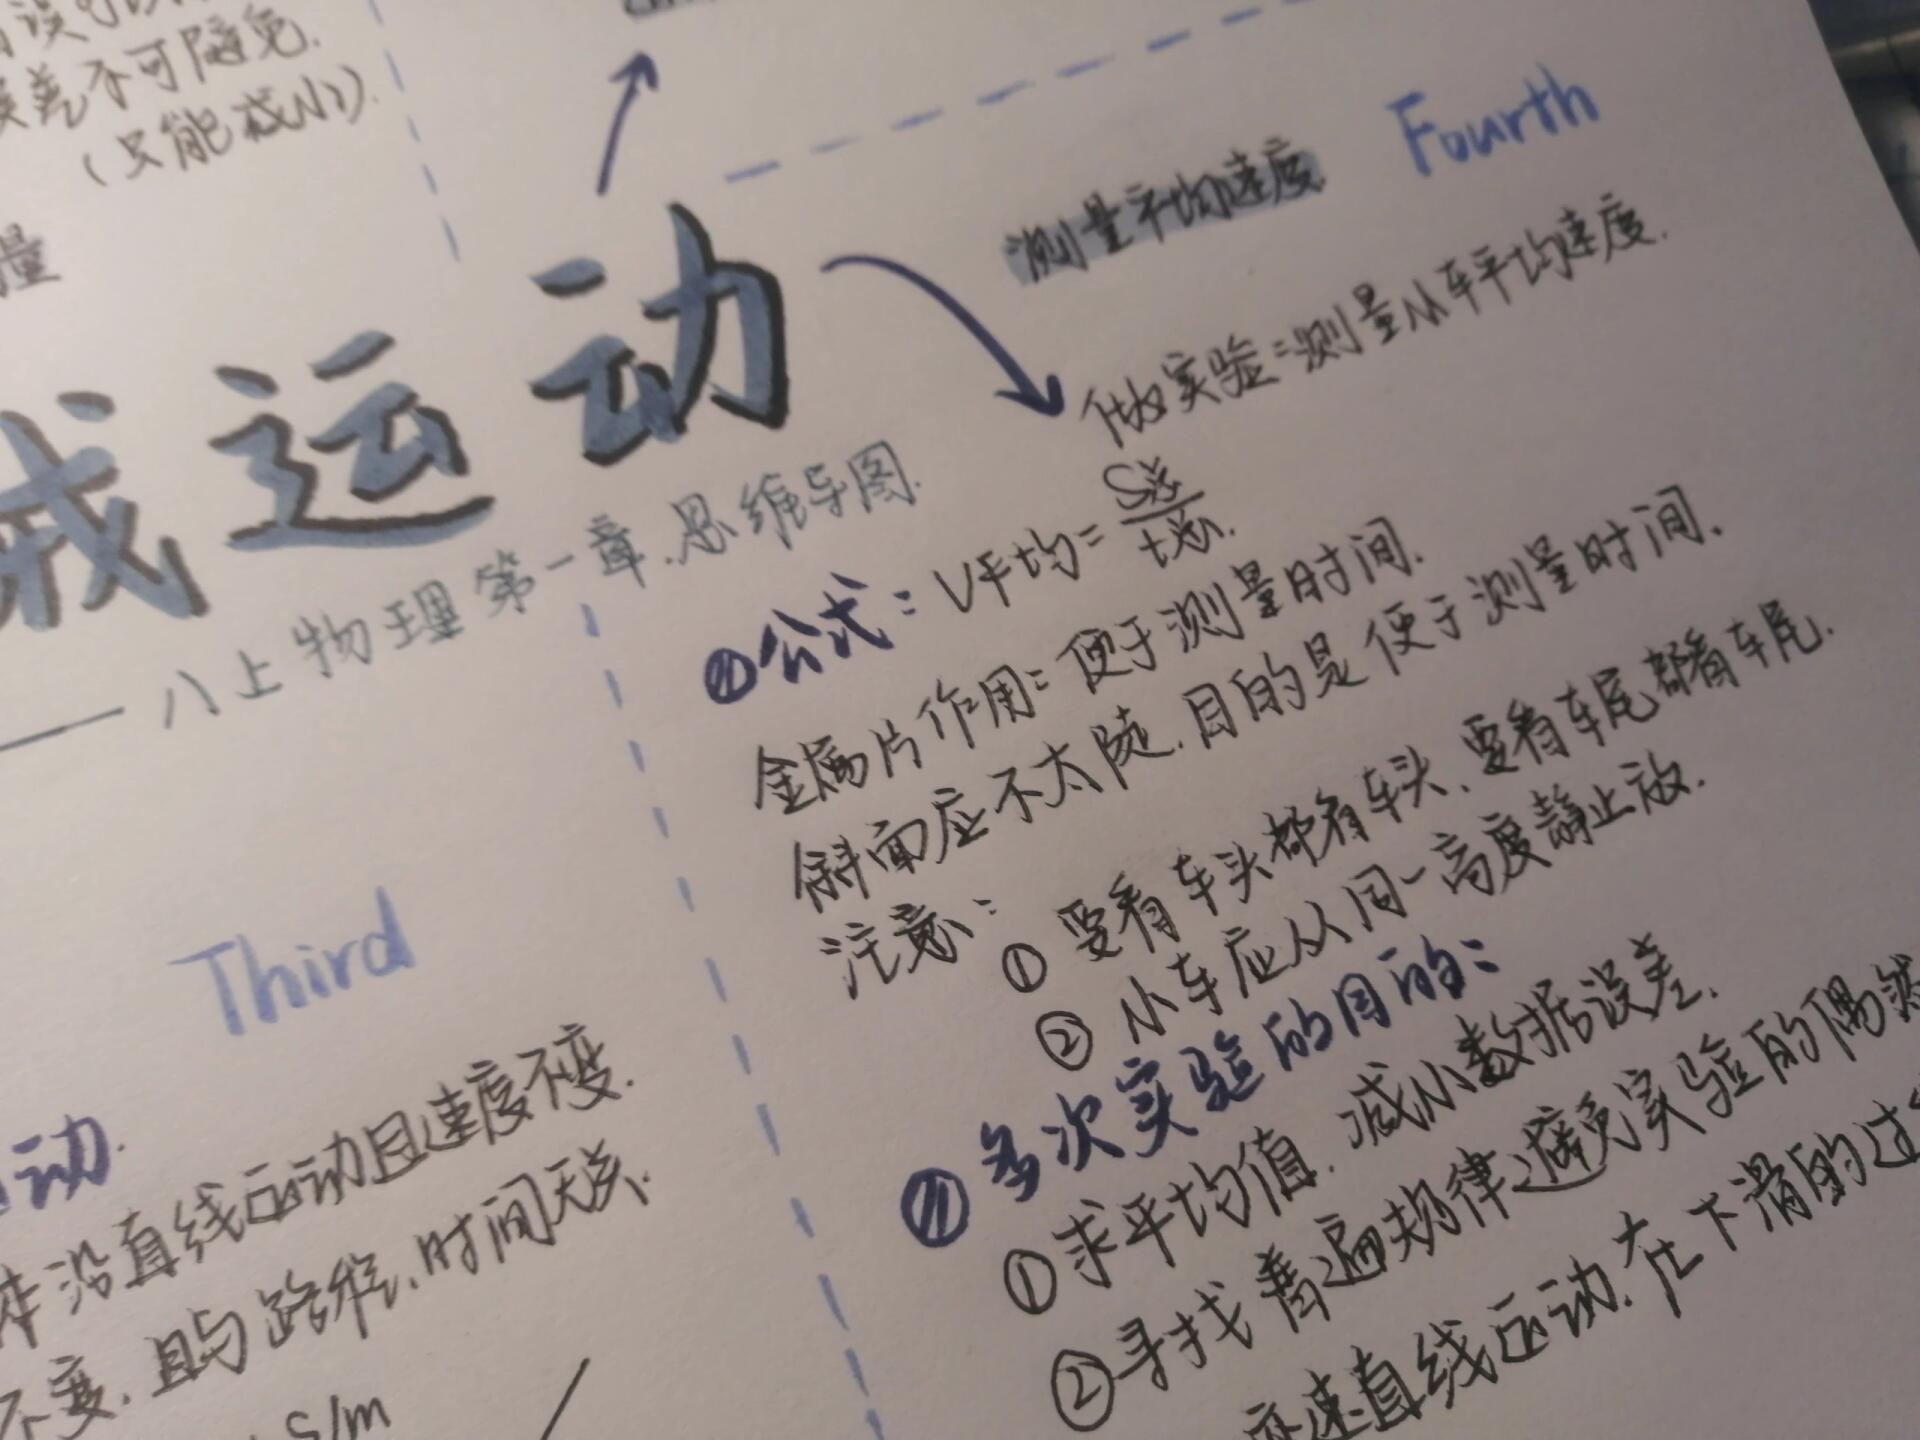 差不可避免.
(只能减小).
量
运动
——八上物理第一章.思维导图.
Fourth
测量平均速度
做实验:测量小车平均速度.
公式:V平均=S总/t总.
金属片作用:便于测量时间.
斜面应不太陡.目的是便于测量时间.
注意:
① 要看车头都看车头.要看车尾都看车尾.
② 小车应从同一高度静止放.
多次实验的目的:
①求平均值.减小数据误差.
②寻找普遍规律避免实验的偶然
变速直线运动.在下滑的过
Third
动.
沿直线运动且速度不变.
不变.且与路程.时间无关.
s/m